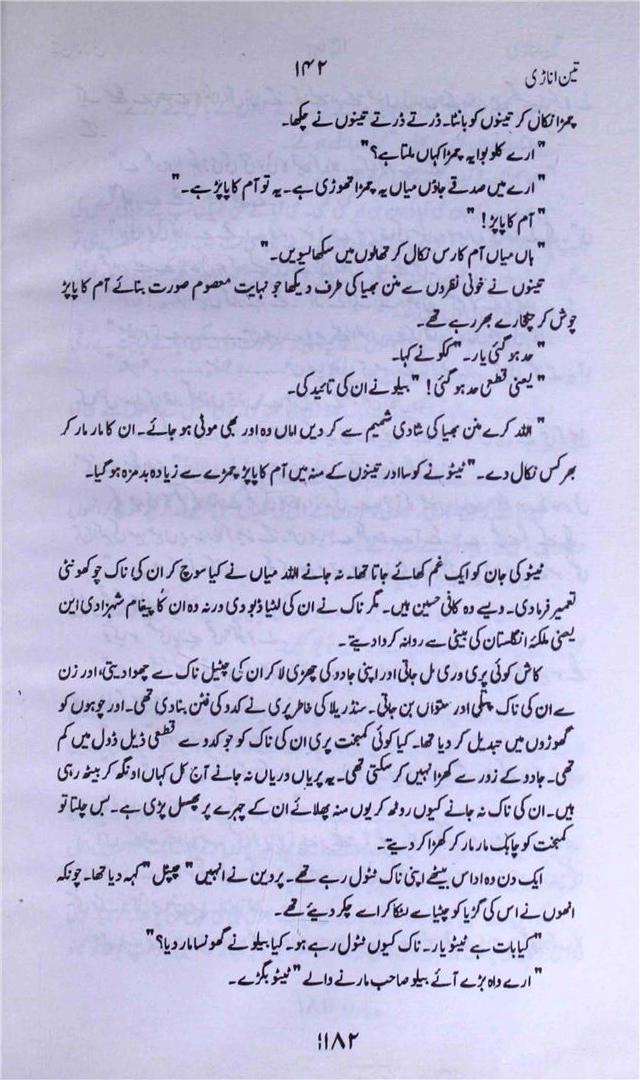 تین اناڑی
۱۴۲
چمڑا نکال کر تینوں کو بانٹا۔ ڈرتے ڈرتے تینوں نے چکھا۔
"ارے کلو بوا یہ چمڑا کہاں ملتا ہے؟"
"ارے میں صدقے جاؤں میاں یہ چمڑا تھوڑی ہے۔ یہ تو آم کا پاپڑ ہے۔"
"آم کا پاپڑ!"
"ہاں میاں آم کا رس نکال کر تھالوں میں سکھا لیویں۔"
تینوں نے خونی نظروں سے منن بھیا کی طرف دیکھا جو نہایت معصوم صورت بنائے آم کا پاپڑ
چوش کر چٹخارے بھر رہے تھے۔
"حد ہو گئی یار۔" ککو نے کہا۔
"یعنی قطعی حد ہو گئی!" ببلو نے ان کی تائید کی۔
"اللہ کرے منن بھیا کی شادی شمیم سے کر دیں اماں وہ اور بھی موٹی ہو جائے۔ ان کا مار مار کر
بھرکس نکال دے۔" ٹیٹو نے کوسا اور تینوں کے منہ میں آم کا پاپڑ چمڑے سے زیادہ بدمزہ ہو گیا۔
ٹیٹو کی جان کو ایک غم کھائے جاتا تھا۔ نہ جانے اللہ میاں نے کیا سوچ کر ان کی ناک چوکھونٹی
تعمیر فرما دی۔ ویسے وہ کافی حسین ہیں۔ مگر ناک نے ان کی لٹیا ڈبو دی ورنہ وہ ان کا پیغام شہزادی این
یعنی ملکۂ انگلستان کی بیٹی سے روانہ کروا دیتے۔
کاش کوئی پری وری مل جاتی اور اپنی جادو کی چھڑی لا کر ان کی چپٹل ناک سے چھوا دیتی، اور زن
سے ان کی ناک پتلی اور ستواں بن جاتی۔ سنڈریلا کی خاطر پری نے کدو کی فٹن بنا دی تھی۔ اور چوہوں کو
گھوڑوں میں تبدیل کر دیا تھا۔ کیا کوئی کمبخت پری ان کی ناک کو جو کدو سے قطعی ڈیل ڈول میں کم
تھی۔ جادو کے زور سے کھڑا نہیں کر سکتی تھی۔ یہ پریاں وریاں نہ جانے آج کل کہاں اونگھ کر بیٹھ رہی
ہیں۔ ان کی ناک نہ جانے کیوں روٹھ کر یوں منہ پھلائے ان کے چہرے پر پھسل پڑی ہے۔ بس چلتا تو
کمبخت کو چابک مار مار کر کھڑا کر دیتے۔
ایک دن وہ اداس بیٹھے اپنی ناک ٹٹول رہے تھے۔ پروین نے انہیں "چپٹل" کہہ دیا تھا۔ چونکہ
انھوں نے اس کی گڑیا کو چٹیا سے لٹکا کر اسے چکر دیئے تھے۔
"کیا بات ہے ٹیٹو یار۔ ناک کیوں ٹٹول رہے ہو۔ کیا ببلو نے گھونسا مار دیا؟"
"ارے واہ بڑے آئے ببلو صاحب مارنے والے" ٹیٹو بگڑے۔
۱۱۸۲